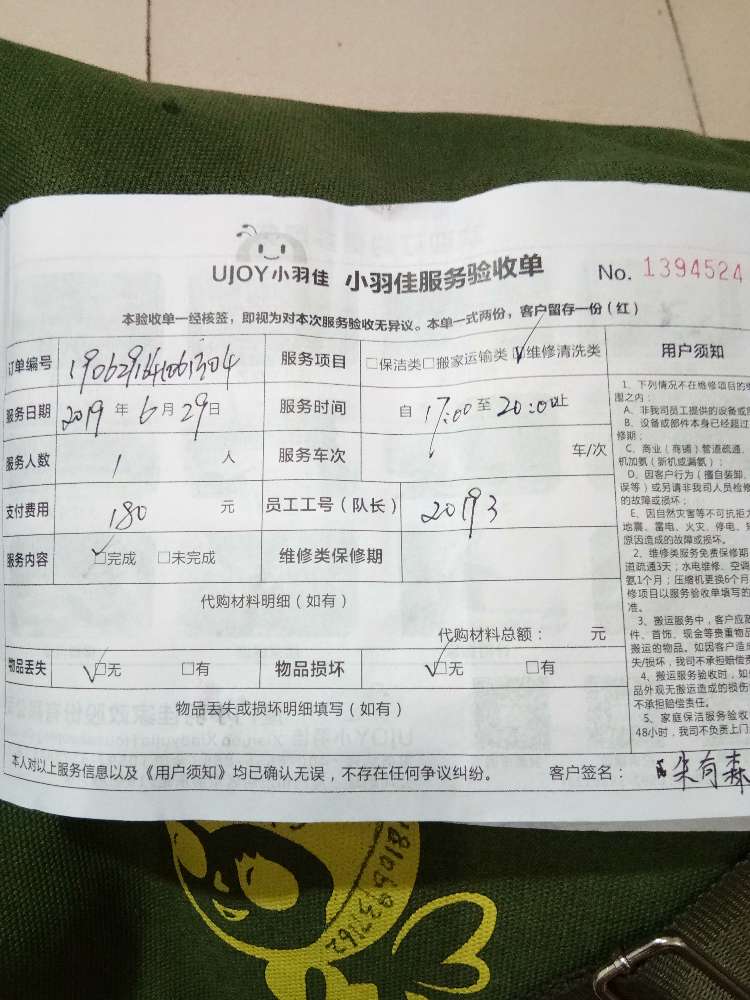 UJOY小羽佳 小羽佳服务验收单 No. 1394524
本验收单一经核签，即视为对本次服务验收无异议。本单一式两份，客户留存一份（红）
订单编号 服务项目 □保洁类□搬家运输类□维修清洗类
服务日期 2019年6月29日 服务时间 自17:00至20:00止
服务人数 1人 服务车次 车/次
支付费用 180元 员工工号（队长） 20193
服务内容 □完成 □未完成 维修类保修期
代购材料明细（如有）
代购材料总额： 元
物品丢失 □无 □有 物品损坏 □无 □有
物品丢失或损坏明细填写（如有）
本人对以上服务信息以及《用户须知》均已确认无误，不存在任何争议纠纷。 客户签名：朱有森
用户须知
1、下列情况不在维修项目的
围之内：
A、非我司员工提供的设备或
B、设备或部件本身已经超过
修期；
C、商业（商铺）管道疏通、
机加氨（新机或漏氨）；
D、因客户行为（擅自装卸、
误等）或另请非我司人员检修
的故障或损坏；
E、因自然灾害等不可抗拒
地震、雷电、火灾、停电、
原因造成的故障或损坏。
2、维修类服务免费保修期
道疏通3天；水电维修、空调
氨1个月；压缩机更换6个月
修项目以服务验收单填写的
准。
3、搬运服务中，客户应
件、首饰、现金等贵重物品
搬运的物品。如因客户造
失/损坏，我司不承担赔偿
4、搬运服务验收时，如
品外观无搬运造成的损伤
不承担赔偿责任。
5、家庭保洁服务验收
48小时，我司不负责上门
18106937162